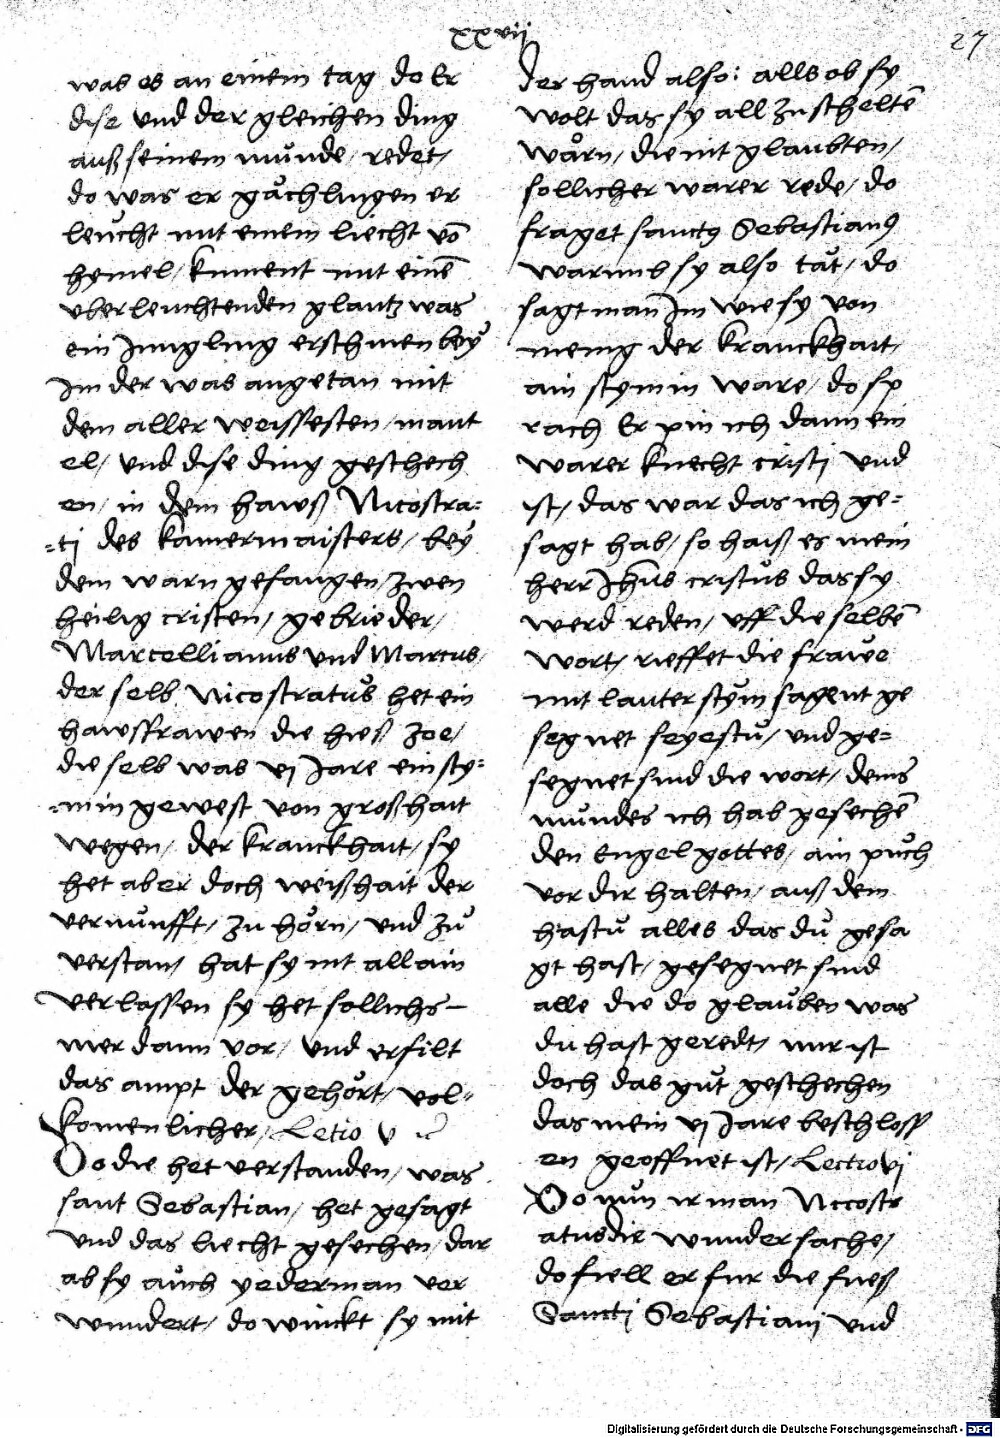 xxvij
27
was es an einem tag do Er
dise vnd der gleichen ding
auß seinem mŭnde / redet /
do was er găchlingen er
leŭcht mit einem liecht võ
hymel / kument mit einẽ
vberleuchtenden glantz was
ein Jungling erschinen beÿ
Im der was angetan mit
dem aller weissesten / mant
el / vnd dise ding geschech
en / in dem hawß Nicostra-
-tj des kamermaisters / beÿ
dem warn gefangen / zwen
heilig cristen / gebrieder /
Marcellianus vnd Marcus /
der selb Nicostratŭs het ein
hawsfrawen die hieß Zoe /
die selb was vj Jare ein sty-
-min gewest von großhait
wegen / der kranckhait / sy
het aber doch weißhait der
vernŭnfft / zu hörn / vnd zŭ
verstan / hat sy nit allain
verlassen sy het sollichs
mer dann vor / vnd erfilt
das ampt der gehört / vol-
komenlicher / Letio v
Do die het verstanden / was
sant Sebastian / het gesagt
vnd das liecht gesechen / dar
ab sy aŭch yederman ver
wundert / do winckt sy mit
der hand also : alls ob sy
wolt das sy all zu scheltẽ
wărn / die nit glaubten /
sollicher warer rede / do
fraget sanctꝰ Sebastianꝰ
warumb sy also tăt / do
sagt man Im wie sy von
menig der kranckhait /
ain stymin ware / do sp
rach Er pin ich dann ein
warer knecht cristj vnd
ist / das war das ich ge-
sagt hab / so haiß es mein
herr Jhŭs cristŭs das sy
werd reden / vff die selbẽ
wort / rieffet die frawe
mit lauter stÿm sagent ge
segnet seyestŭ / vnd ge-
segnet sind die wort / deins
mŭndes ich hab gesechẽ
den Engel gottes / ain pŭch
vor dir halten / auß dem
hastŭ alles das dŭ gesa
gt hast / gesegnet sind
alle die do glaŭben was
du hast geredt / mir ist
doch das gŭt geschechen
das mein vj Jare beschloss
en geoffnet ist / Lectio vj
Do nŭn ir man Niccostr
atus die wunder sache /
do fiell er fur die fueß
Sanctj Sebastianj vnd
Digitalisierung gefördert durch die Deutsche Forschungsgemeinschaft - DFG